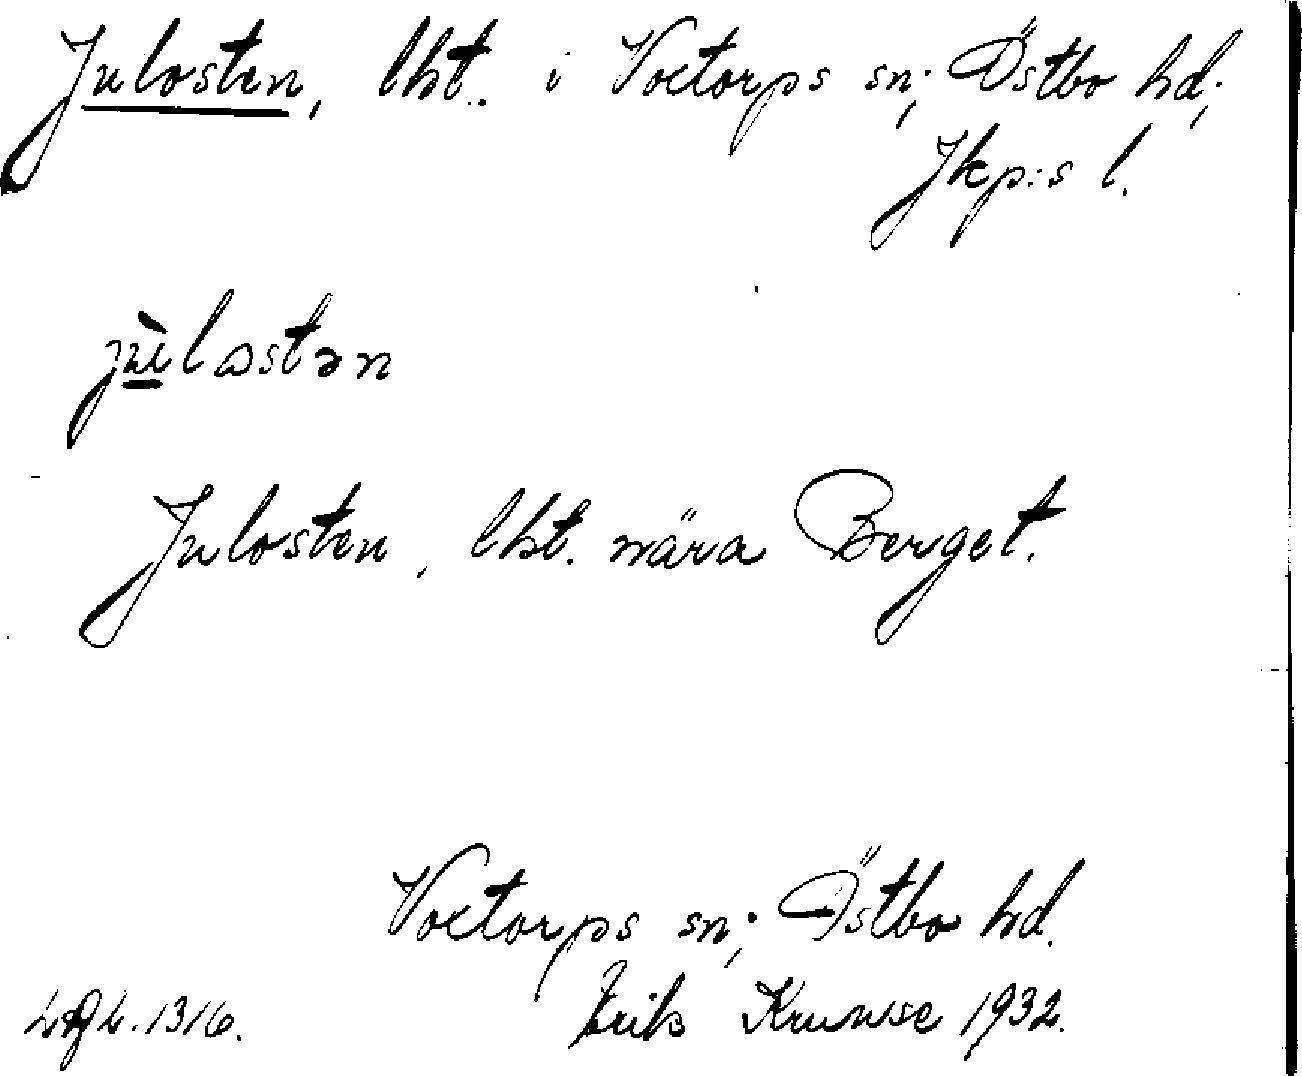 Julosten, lht. i Voxtorps sn; Östbo hd;
Jkp:s l.
jùlostən
Julosten, lht. nära Berget.
Voxtorps sn; Östbo hd.
Erik Kruuse 1932.